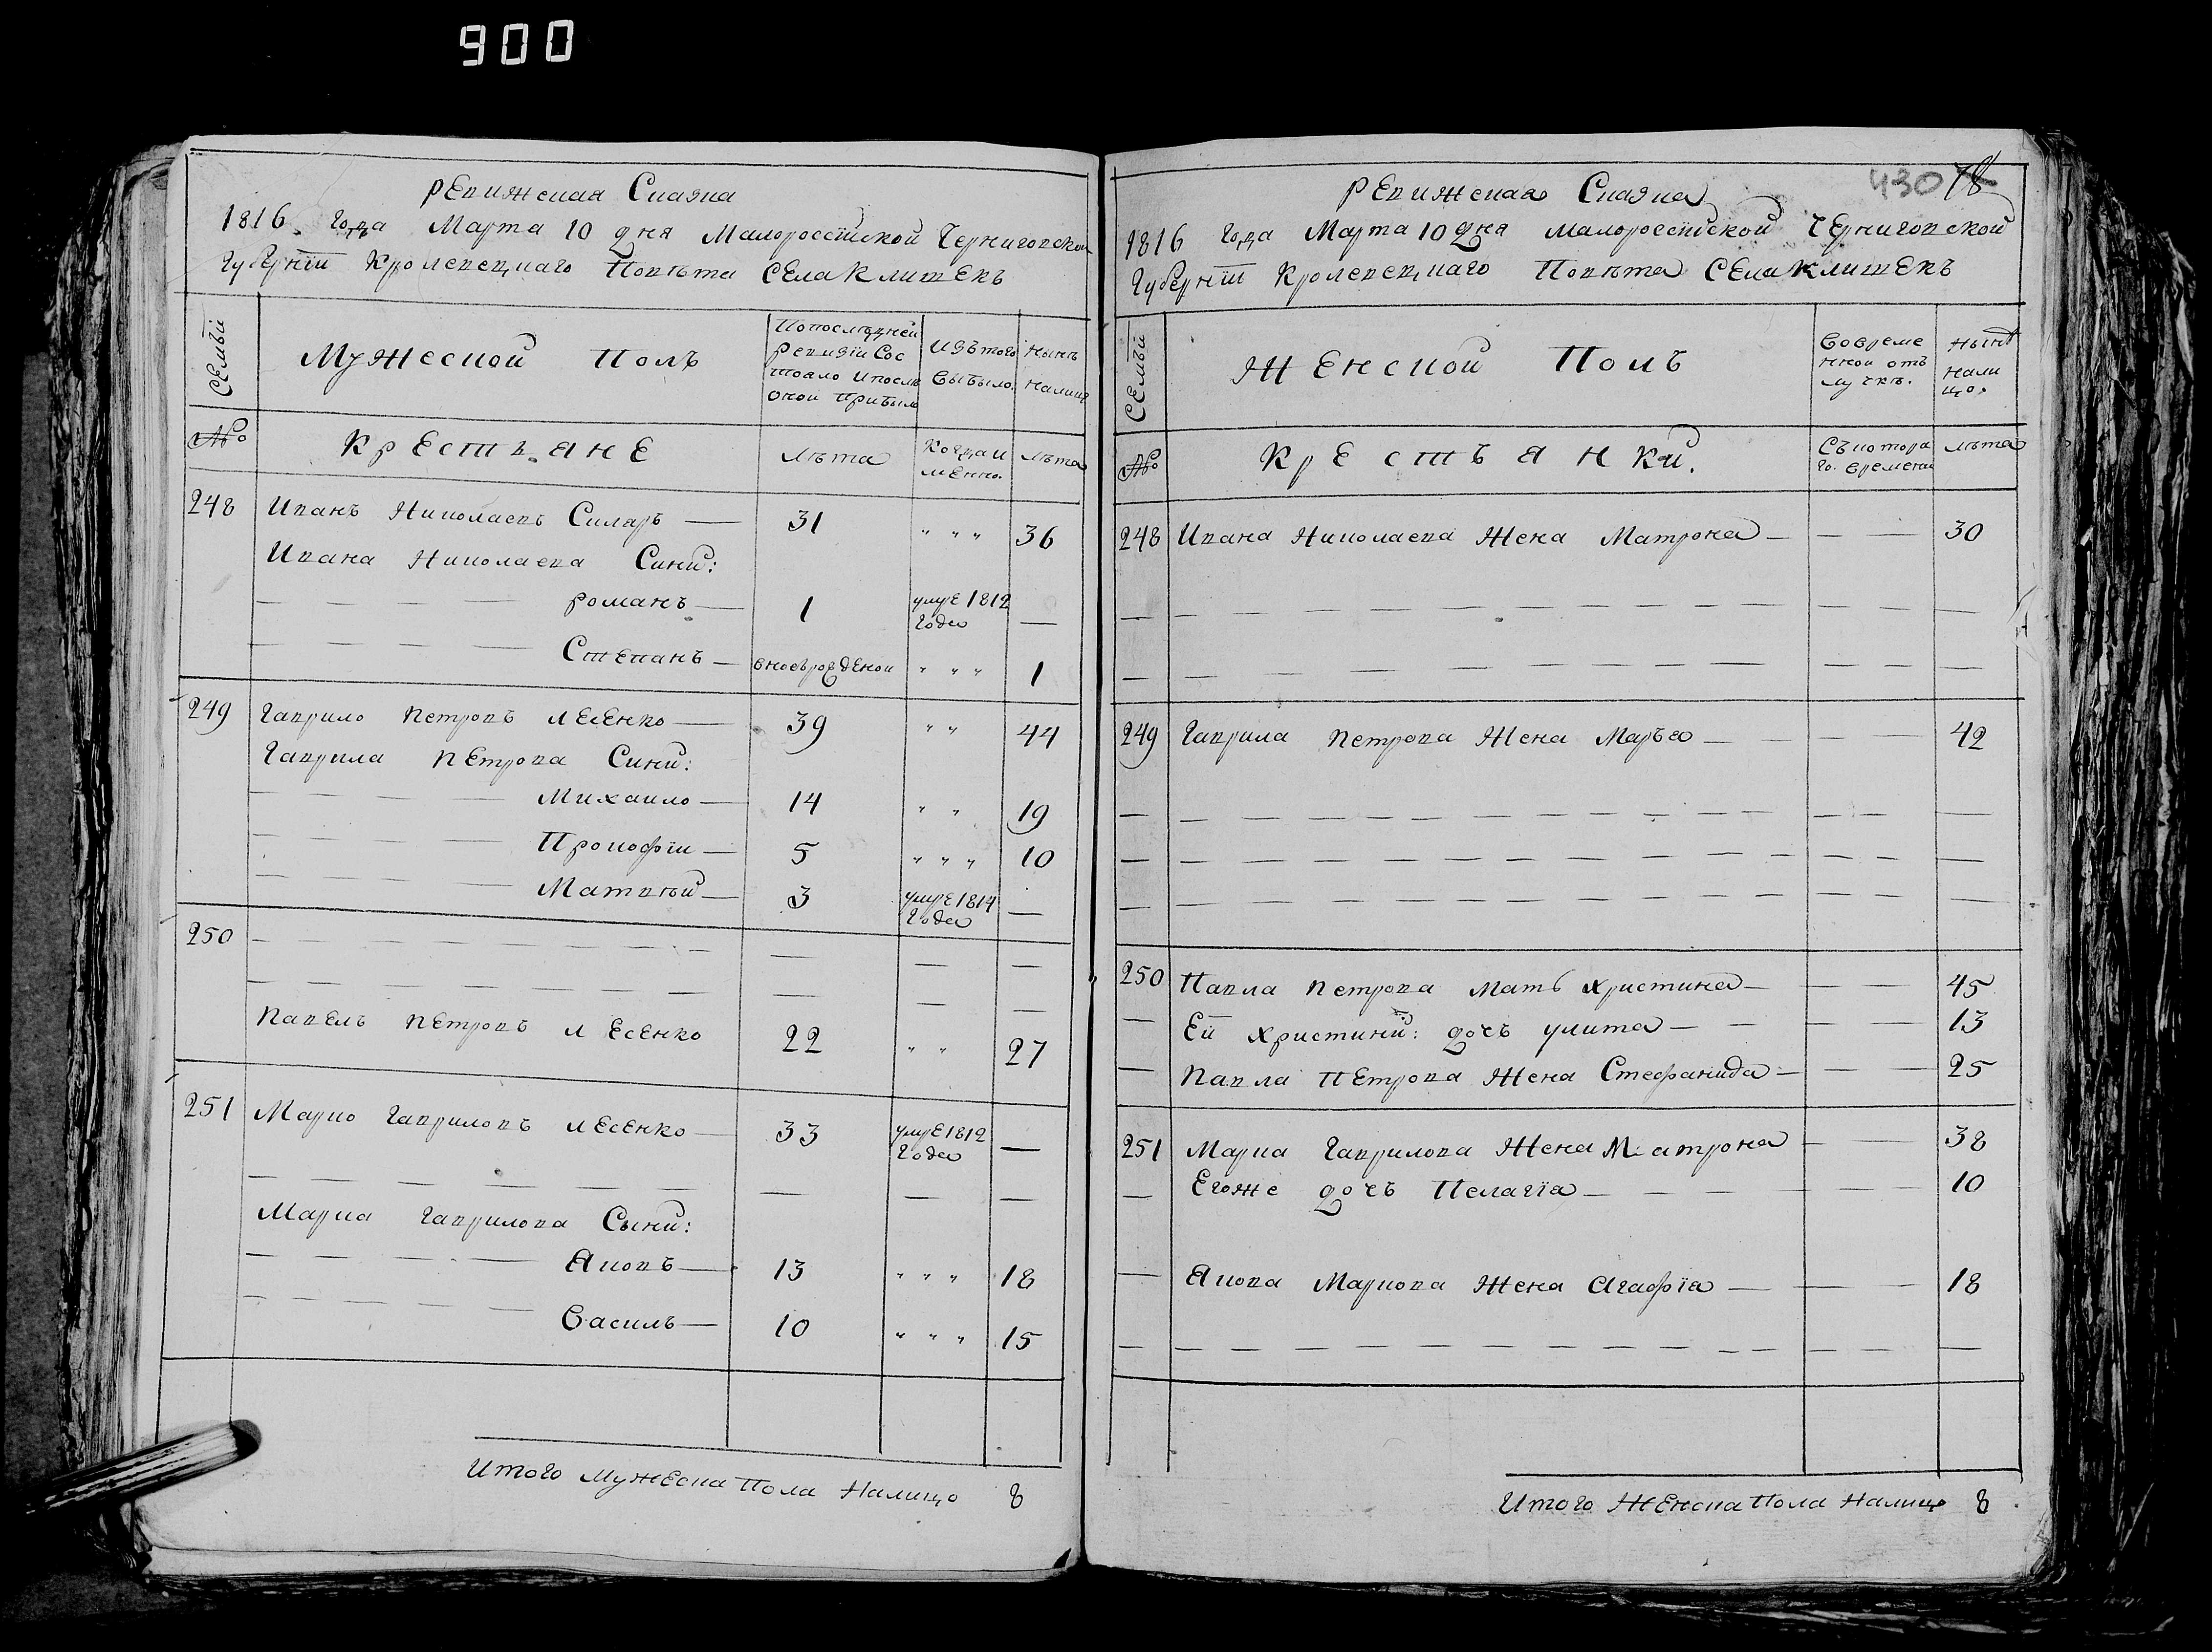 900
Ревижская Сказка
1816 года Марта 10 дня Малороссійской Черниговской
Губерніи Кролевецкаго Повѣта Села Клишекъ
Семьи
Мужеской Полъ
Попослѣдней
ревизіи Сос
тояло Ипослѣ
оной Прибыло
Изътого
Выбыло.
Нынѣ
Налицо
№
Крестьяне
Лѣта
Когда и
менно.
Лѣта
248 Иванъ Николаевъ Силаръ — 31 " " " 36
Ивана Николаева Сини:
Романъ — 1 умре 1812 —
Года
Степанъ — вновърожденои " " " 1
249 Гаврило Петровъ Лесенко — 39 " " 44
Гаврила Петрова Сини:
Михаило — 14 " " 19
Прокофіи — 5 " " " 10
Матвѣй — 3 умре 1814 —
Года
250
Павелъ Петровъ Лесенко 22 " " 27
251 Марко Гавриловъ Лесенко — 33 умре 1812 —
Года
Марка Гаврилова Сыни:
Яковъ — 13 " " " 18
Василь — 10 " " " 15
Итого Мужеска Пола Налицо 8
430 78
Ревижская Сказка
1816 года Марта 10 дня Малороссійской Черниговской
Губерніи Кролевецкаго Повѣта Села Клишекъ
Семьи
Женской Полъ
Вовреме
нной отъ
лучкѣ.
Нынѣ
нали
цо.
№
Крестьянки.
Съкотора
го времени
лѣта
248 Ивана Николаева Жена Матрона — — — 30
249 Гаврила Петрова Жена Марья — — — 42
250 Павла Петрова Мать Христина — — — 45
— Ей Христини: дочь Улита — — — 13
— Павла Петрова Жена Стефанида — — — 25
251 Марка Гаврилова Жена Матрона — — 38
— Егоже дочь Пелагія — — — 10
— Якова Маркова Жена Агафія — — — 18
Итого Женска Пола Налицо 8